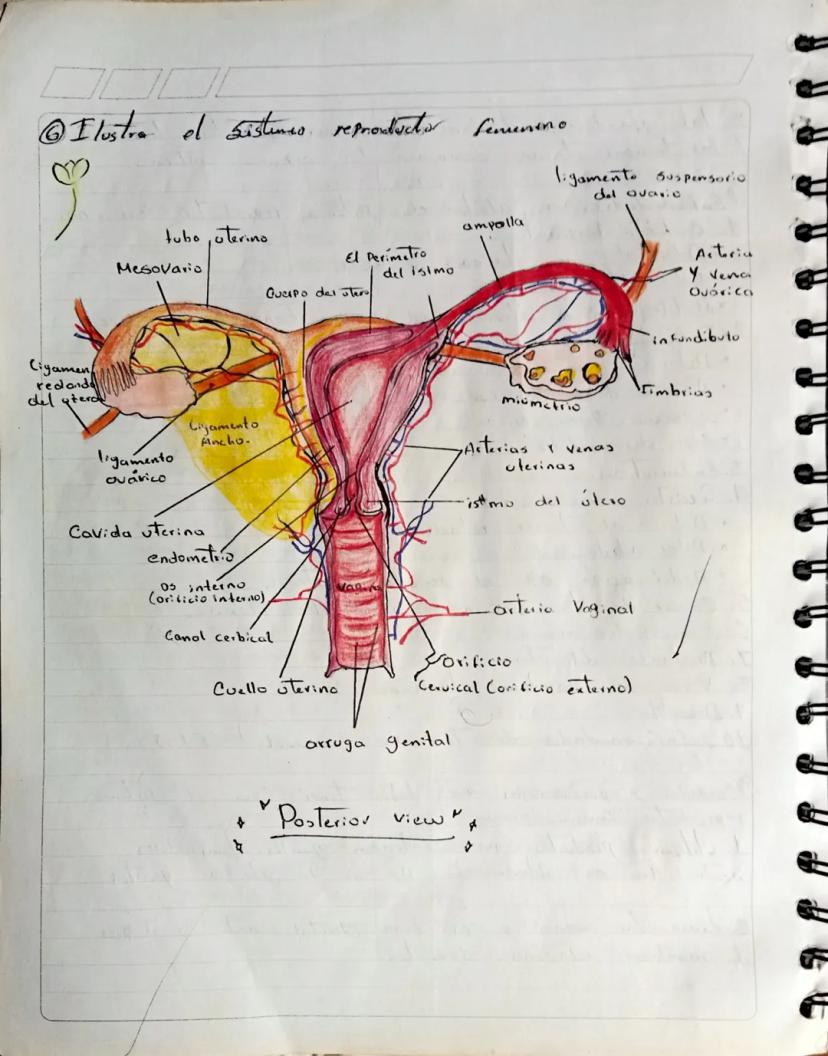 ⑥ Ilustra el Sistema reproductor femenino
ligamento suspensorio
del ovario
tubo uterino
ampolla
El Perímetro
del istmo
Mesovario
Cuerpo del utero
Arteria
y vena
ovárica
infundibulo
Fimbrias
Ligamen
redondo
del utero
miometrio
Ligamento
Ancho.
ligamento
ovárico
Arterias y venas
uterinas
istmo del útero
Cavida uterina
endometrio
os interno
(orificio interno)
vagina
arteria Vaginal
Canal cerbical
Cuello uterino
Orificio
Cervical (orificio externo)
arruga genital
"Posterior view"